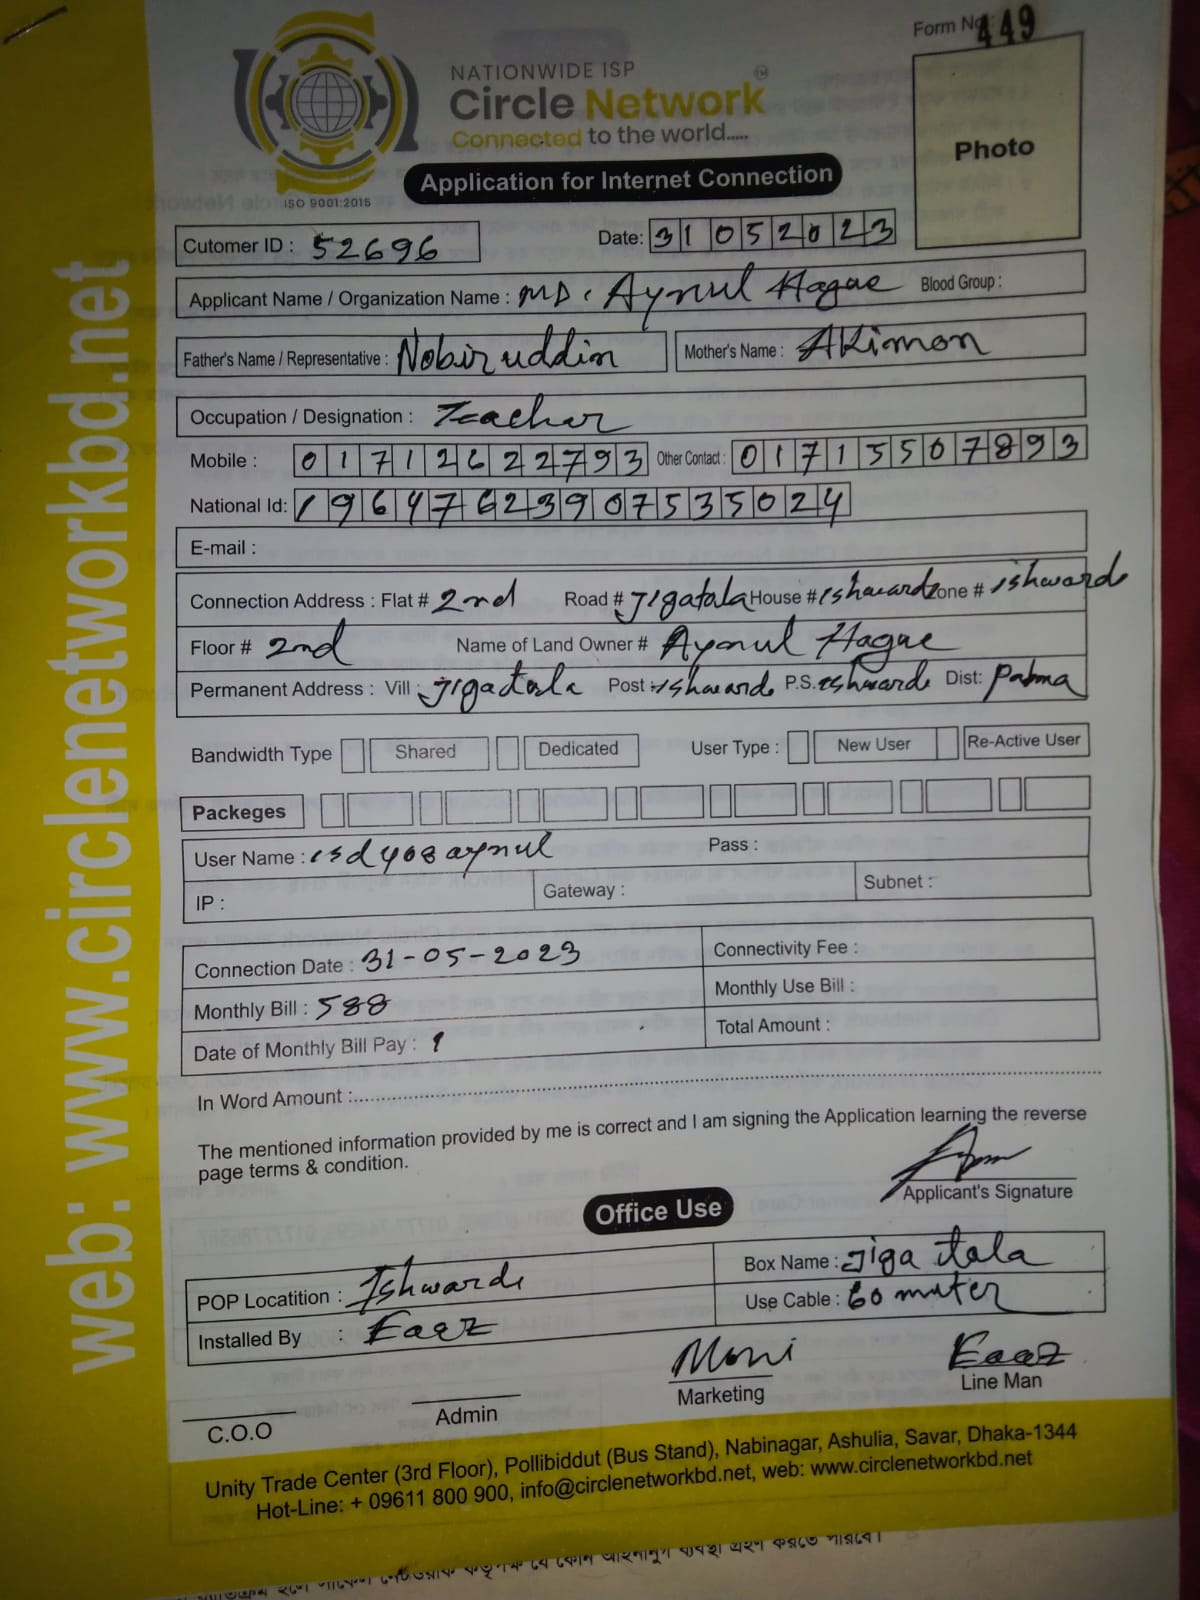 Form No: 449
NATIONWIDE ISP
Circle Network TM
Connected to the world.....
ISO 9001:2015
Application for Internet Connection
Photo
Cutomer ID : 52696 Date: 31052023
Applicant Name / Organization Name : MD. Aynul Haque Blood Group :
Father's Name / Representative : Nobiruddin Mother's Name : AKimon
Occupation / Designation : Teachar
Mobile : 01712622793 Other Contact : 01715507893
National Id: 19647623907535024
E-mail :
Connection Address : Flat # 2nd Road # Jigatala House # ishwardi Zone # ishwardi
Floor # 2nd Name of Land Owner # Aynul Haque
Permanent Address : Vill : Jigatala Post : ishwardi P.S. ishwardi Dist: Pabna
Bandwidth Type Shared Dedicated User Type : New User Re-Active User
Packeges
User Name : isd408aynul Pass :
IP : Gateway : Subnet :
Connection Date : 31-05-2023 Connectivity Fee :
Monthly Bill : 588 Monthly Use Bill :
Date of Monthly Bill Pay : 1 Total Amount :
In Word Amount :
The mentioned information provided by me is correct and I am signing the Application learning the reverse
page terms & condition.
Applicant's Signature
Office Use
POP Locatition : Ishwardi Box Name : Jiga tala
Installed By : Eaaz Use Cable : 60 muter
Moni Eaaz
C.O.O Admin Marketing Line Man
Unity Trade Center (3rd Floor), Pollibiddut (Bus Stand), Nabinagar, Ashulia, Savar, Dhaka-1344
Hot-Line: + 09611 800 900, info@circlenetworkbd.net, web: www.circlenetworkbd.net
web: www.circlenetworkbd.net